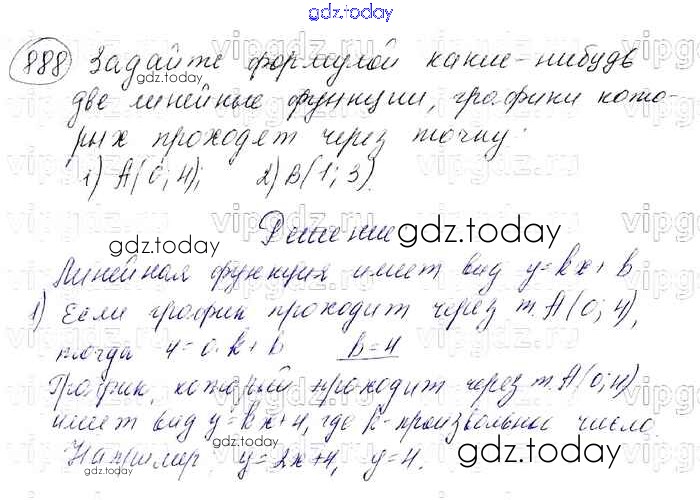 gdz.today
888 Задайте формулой какие-нибудь
две линейные функции, графики кото-
рых проходят через точку:
1) A(0; 4); 2) B(1; 3).
Решение
Линейная функция имеет вид y=kx+b
1) Если график проходит через т. A(0; 4),
тогда 4=0·k+b b=4
График, который проходит через т. A(0;4)
имеет вид y=kx+4, где k-произвольное число
Например: y=2x+4, y=4.
gdz.today
gdz.today
gdz.today
gdz.today
gdz.today
gdz.today
gdz.today